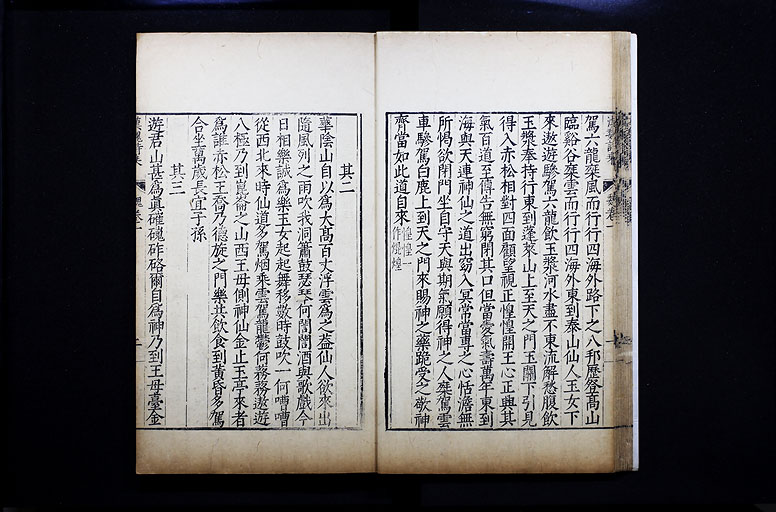 駕六龍椉風而行行四海外路下之八邦歷登高山
臨谿谷椉雲而行行四海外東到泰山仙人玉女下
來遨遊驂駕六龍飲玉漿河水盡不東流解愁腹飲
玉漿奉持行東到蓬萊山上至天之門玉闕下引見
得入赤松相對四面顧望視正惶惶開王心正興其
氣百道至傳告無窮閉其口但當愛氣壽萬年東到
海與天連神仙之道出窈入冥常當專之心恬澹無
所愒欲閉門坐自守天與期氣願得神之人椉駕雲
車驂駕白鹿上到天之門來賜神之藥跪受之敬神
齊當如此道自來惶惶一作煌煌
其二
華陰山自以爲大高百丈浮雲爲之葢仙人欲來出
隨風列之雨吹我洞簫鼓瑟琴何誾誾酒與歌戲今
日相樂誠爲樂玉女起起舞移數時鼓吹一何嘈嘈
從西北來時仙道多駕烟乘雲駕龍鬱何蓩蓩遨遊
八極乃到崑崙之山西王母側神仙金止玉亭來者
爲誰赤松王喬乃德旋之門樂共飲食到黃昏多駕
合坐萬歲長宜子孫
其三
遊君山甚爲眞磪磈砟硌爾自爲神乃到王母臺金